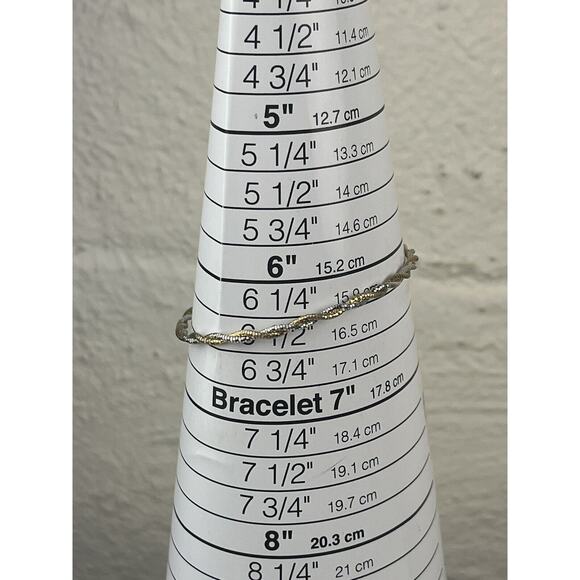 4 1/2" 11.4 cm
4 3/4" 12.1 cm
5" 12.7 cm
5 1/4" 13.3 cm
5 1/2" 14 cm
5 3/4" 14.6 cm
6" 15.2 cm
6 1/4" 15.9 cm
6 1/2" 16.5 cm
6 3/4" 17.1 cm
Bracelet 7" 17.8 cm
7 1/4" 18.4 cm
7 1/2" 19.1 cm
7 3/4" 19.7 cm
8" 20.3 cm
8 1/4" 21 cm